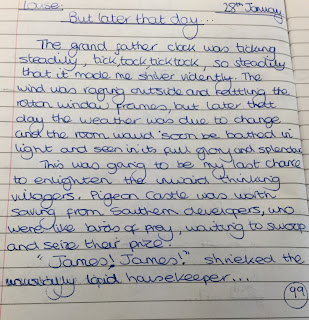 Louise:
28th January
But later that day...
The grand father clock was ticking
steadily, tick, tock tick tock, so steadily
that it made me shiver vidently. The
wind was raging outside and rattling the
rotten window frames, but later that
day the weather was due to change
and the room would soon be bathed in
light and seen in its full glory and splendour.
This was going to be my last chance
to enlighten the inward thinking
villagers. Pigeon Castle was worth
saving from Southern developers, who
were like birds of prey, waiting to swoop
and seize their prize.
"James! James!" shrieked the
unusually loud housekeeper...
99